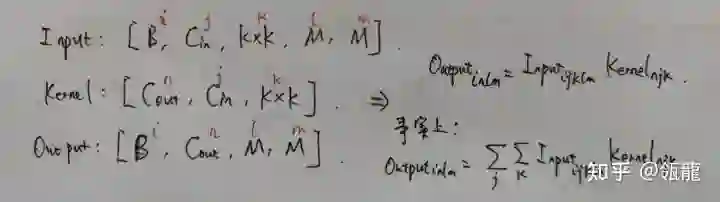 Input: [B, Cin, k×k, M, M].
i j k l m
Kernel: [Cout, Cin, k×k]. ⇒
n j k
Output: [B, Cout, M, M].
i n l m
Output_inlm = Input_ijklm Kernel_njk.
事实上:
Output_inlm = ∑_j ∑_k Input_ijk Kernel_njk
知乎 @瓴龍